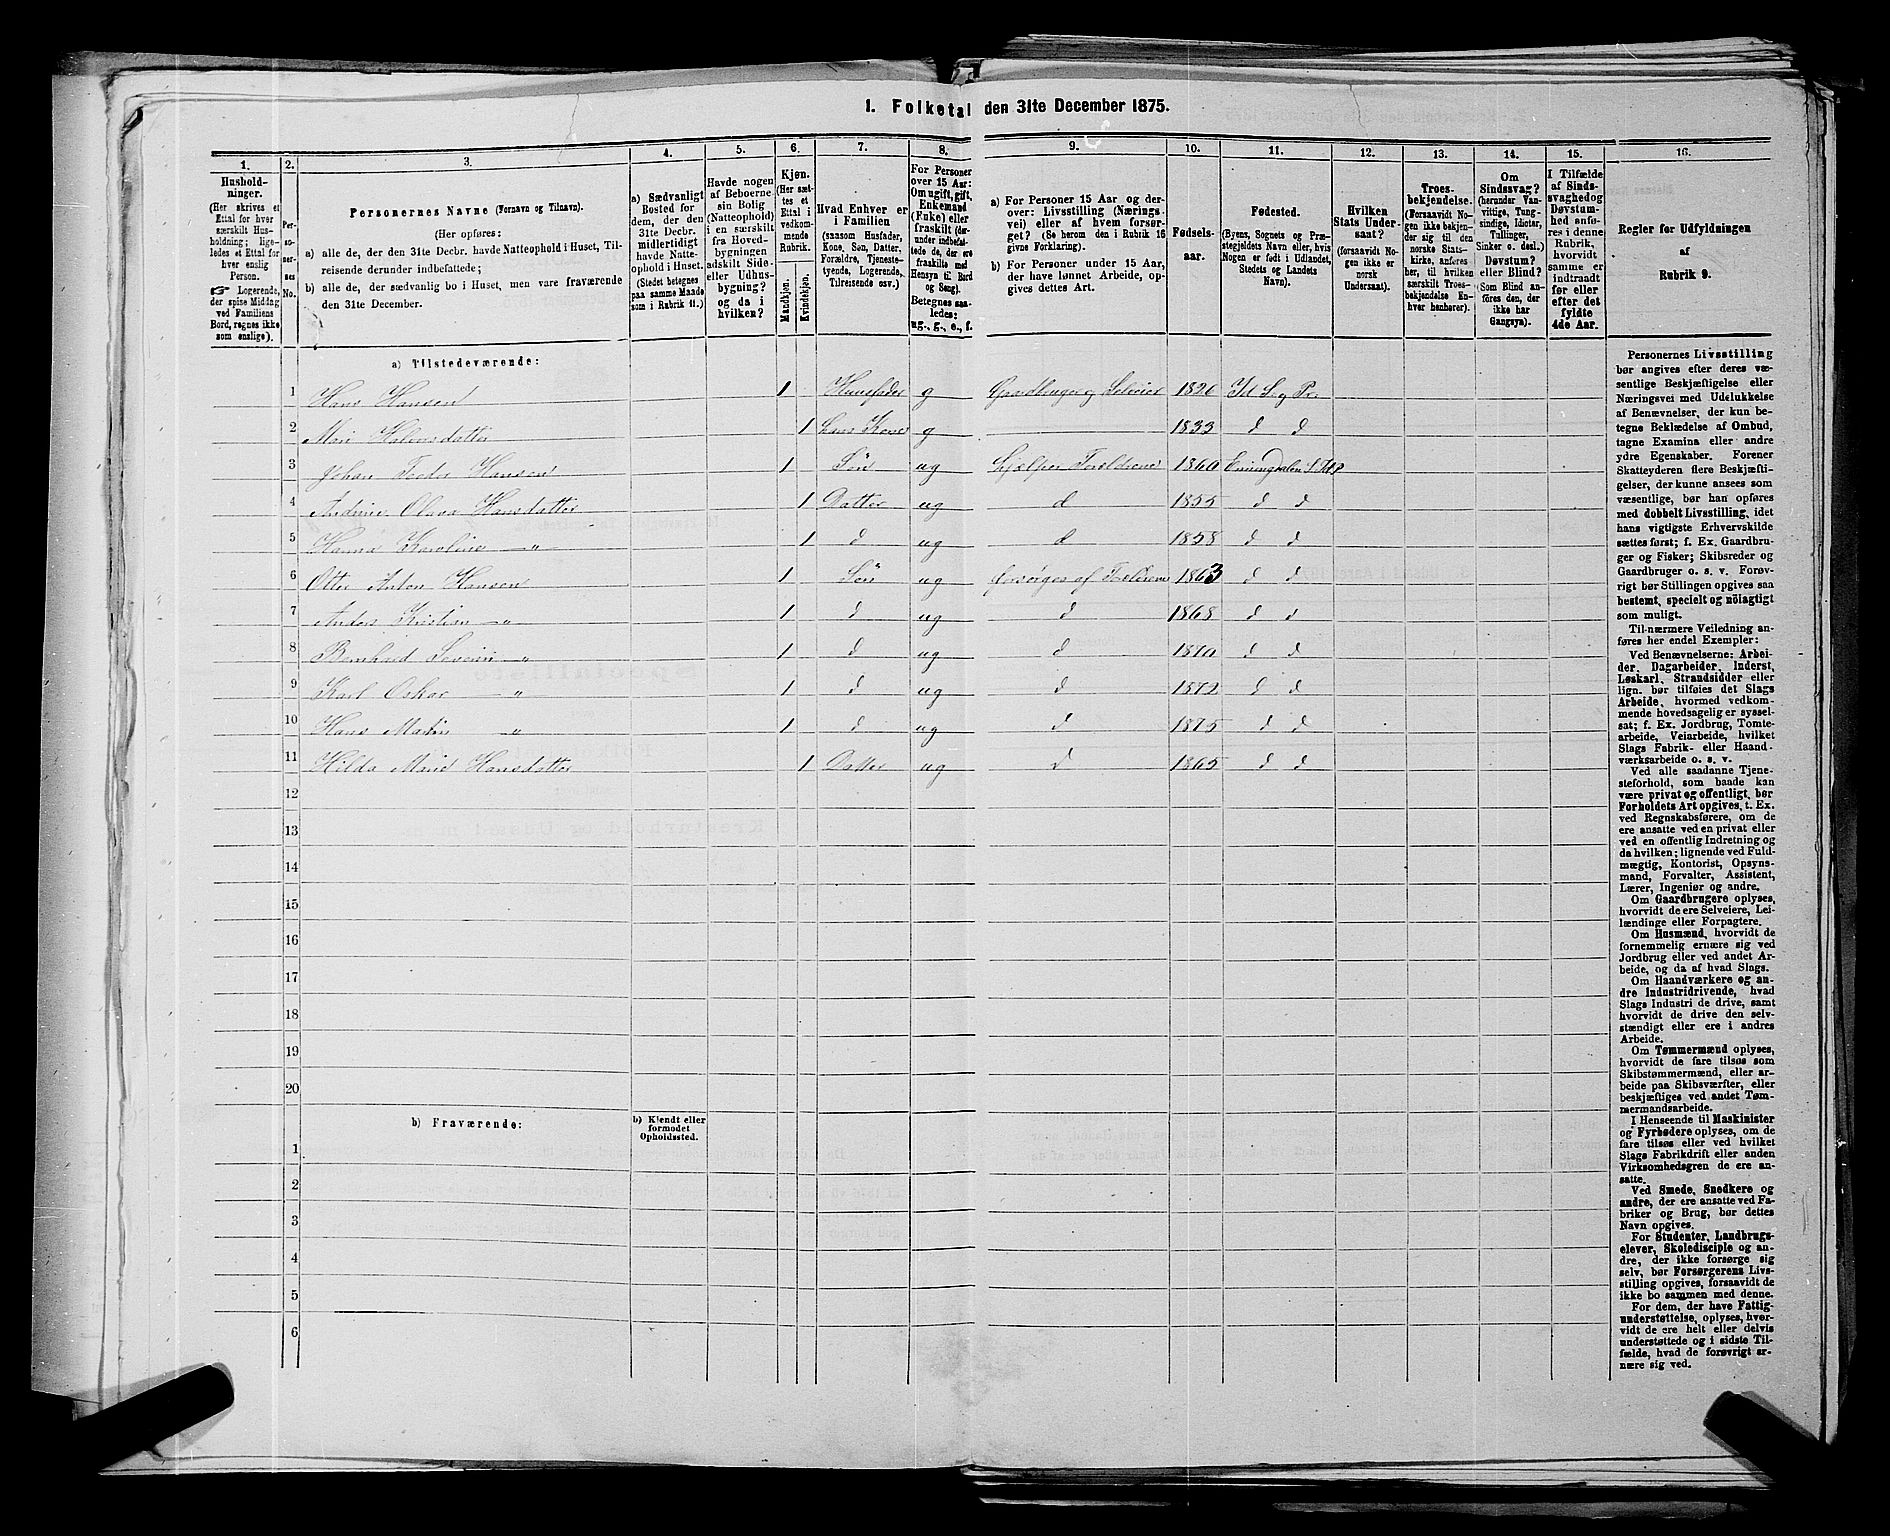 1. Folketal den 31te December 1875.
1. 2. 3. 4. 5. 6. 7. 8. 9. 10. 11. 12. 13. 14. 15. 16.
Hushold-
ninger.
(Her skrives et
Ettal for hver
særskilt Hus-
holdning; lige-
ledes et Ettal for
hver enslig
Person.
☞ Logerende,
der spise Middag
ved Familiens
Bord, regnes ikke
som enslige).
Per-
so-
ner-
nes
No.
Personernes Navne (Fornavn og Tilnavn).
(Her opføres:
a) alle de, der den 31te Decbr. havde Natteophold i Huset, Til-
reisende derunder indbefattede;
b) alle de, der sædvanlig bo i Huset, men vare fraværende
den 31te December.
a) Sædvanligt
Bosted for
dem, der den
31te Decbr.
midlertidigt
havde Natte-
ophold i Huset.
(Stedet betegnes
paa samme Maade
som i Rubrik 11.)
Havde nogen
af Beboerne
sin Bolig
(Natteophold)
i en særskilt
fra Hoved-
bygningen
adskilt Side-
eller Udhus-
bygning?
og da i
hvilken?
Kjøn.
(Her sæt-
tes et
Ettal i
vedkom-
mende
Rubrik.
Mandkjøn.
Kvindekjøn.
Hvad Enhver er
i Familien
(saasom Husfader,
Kone, Søn, Datter,
Forældre, Tjeneste-
tyende, Logerende,
Tilreisende osv.)
For Personer
over 15 Aar:
Om ugift, gift,
Enkemand
(Enke) eller
fraskilt (der-
under indbefat-
tede de, der ere
fraskilte med
Hensyn til Bord
og Seng).
Betegnes saa-
ledes:
ug., g., e., f.
a) For Personer 15 Aar og der-
over: Livsstilling (Nærings-
vei) eller af hvem forsør-
get? (Se herom den i Rubrik 16
givne Forklaring).
b) For Personer under 15 Aar,
der have lønnet Arbeide, op-
gives dettes Art.
Fødsels-
aar.
Fødested.
(Byens, Sognets og Præ-
stegjeldets Navn eller, hvis
Nogen er født i Udlandet,
Stedets og Landets
Navn).
Hvilken
Stats Under-
saat?
(forsaavidt No-
gen ikke er
norsk
Undersaat).
Troes-
bekjendelse.
(Forsaavidt No-
gen ikke bekjen-
der sig til den
norske Stats-
kirke, anføres
her, til hvilken
særskilt Troes-
bekjendelse En-
hver henhører).
Om
Sindssvag?
(herunder Van-
vittige, Tung-
sindige, Idioter,
Tullinger,
Sinker o. desl.)
Døvstum?
eller Blind?
(Som Blind an-
føres den, der
ikke har
Gangsyn).
I Tilfælde
af Sinds-
svaghed og
Døvstum-
hed anfø-
res i denne
Rubrik,
hvorvidt
samme er
indtraadt
før eller
efter det
fyldte
4de Aar.
Regler for Udfyldningen
af
Rubrik 9.
a) Tilstedeværende:
1 Hans Hansen 1 Huusfader g Gaardbruger og Selveier 1826 Id S. og Pr.
2 Mari Halvorsdatter 1 hans Kone g 1833 d d
3 Johan Peder Hansen 1 Søn ug hjælper Forældrene 1860 Enningdalen S. Id P
4 Andrine Olava Hansdatter 1 Datter ug d 1855 d d
5 Hanna Karoline —„— 1 d ug d 1858 d d
6 Otto Anton Hansen 1 Søn ug forsørges af Forældrene 1863 d d
7 Anders Kristian —„ 1 d ug d 1868 d d
8 Bernhard Severin „ 1 d ug d 1870 d d
9 Karl Oskar — „ 1 d ug d 1872 d d
10 Hans Martin „ 1 d ug d 1875 d d
11 Hilda Marie Hansdatter 1 Datter ug d 1865 d d
12
13
14
15
16
17
18
19
20
b) Fraværende:
b) Kjendt eller
formodet
Opholdssted.
1
2
3
4
5
6
Personernes Livsstilling
bør angives efter deres væ-
sentlige Beskjæftigelse eller
Næringsvei med Udelukkelse
af Benævnelser, der kun be-
tegne Beklædelse af Ombud,
tagne Examina eller andre
ydre Egenskaber. Forener
Skatteyderen flere Beskjæfti-
gelser, der kunne ansees som
væsentlige, bør han opføres
med dobbelt Livsstilling, idet
hans vigtigste Erhvervskilde
sættes først; f. Ex. Gaardbru-
ger og Fisker; Skibsreder og
Gaardbruger o. s. v. Forøv-
rigt bør Stillingen opgives saa
bestemt, specielt og nöiagtigt
som muligt.
Til nærmere Veiledning an-
føres her endel Exempler:
Ved Benævnelserne: Arbei-
der, Dagarbeider, Inderst,
Løskarl, Strandsidder eller
lign. bør tilføies det Slags
Arbeide, hvormed vedkom-
mende hovedsagelig er syssel-
sat; f. Ex. Jordbrug, Tomte-
arbeide, Veiarbeide, hvilket
Slags Fabrik- eller Haand-
værksarbeide o. s. v.
Ved alle saadanne Tjene-
steforhold, som baade kan
være privat og offentligt, bør
Forholdets Art opgives, t. Ex.
ved Regnskabsførere, om de
ere ansatte ved en privat eller
ved en offentlig Indretning og
da hvilken; lignende ved Fuld-
mægtig, Kontorist, Opsyns-
mand, Forvalter, Assistent,
Lærer, Ingeniør og andre.
Om Gaardbrugere oplyses,
hvorvidt de ere Selveiere, Lei-
lændinge eller Forpagtere.
Om Husmænd, hvorvidt de
fornemmelig ernære sig ved
Jordbrug eller ved andet Ar-
beide, og da af hvad Slags.
Om Haandværkere og an-
dre Industridrivende, hvad
Slags Industri de drive, samt
hvorvidt de drive den selv-
stændigt eller ere i andres
Arbeide.
Om Tømmermænd oplyses,
hvorvidt de fare tilsøs som
Skibstømmermænd, eller ar-
beide paa Skibsværfter, eller
beskjæftiges ved andet Tøm-
mermandsarbeide.
I Henseende til Maskinister
og Fyrbødere oplyses, om de
fare tilsøs eller ved hvilket
Slags Fabrikdrift eller anden
Virksomhedsgren de ere an-
satte.
Ved Smede, Snedkere og
andre, der ere ansatte ved Fa-
briker og Brug, bør dettes
Navn opgives.
For Studenter, Landbrugs-
elever, Skoledisciple og an-
dre, der ikke forsørge sig
selv, bør Forsørgerens Livs-
stilling opgives, forsaavidt de
ikke bo sammen med denne.
For dem, der have Fattig-
understøttelse, oplyses, hvor-
vidt de ere helt eller delvis
understøttede og i sidste Til-
fælde, hvad de forøvrigt er-
nære sig ved.